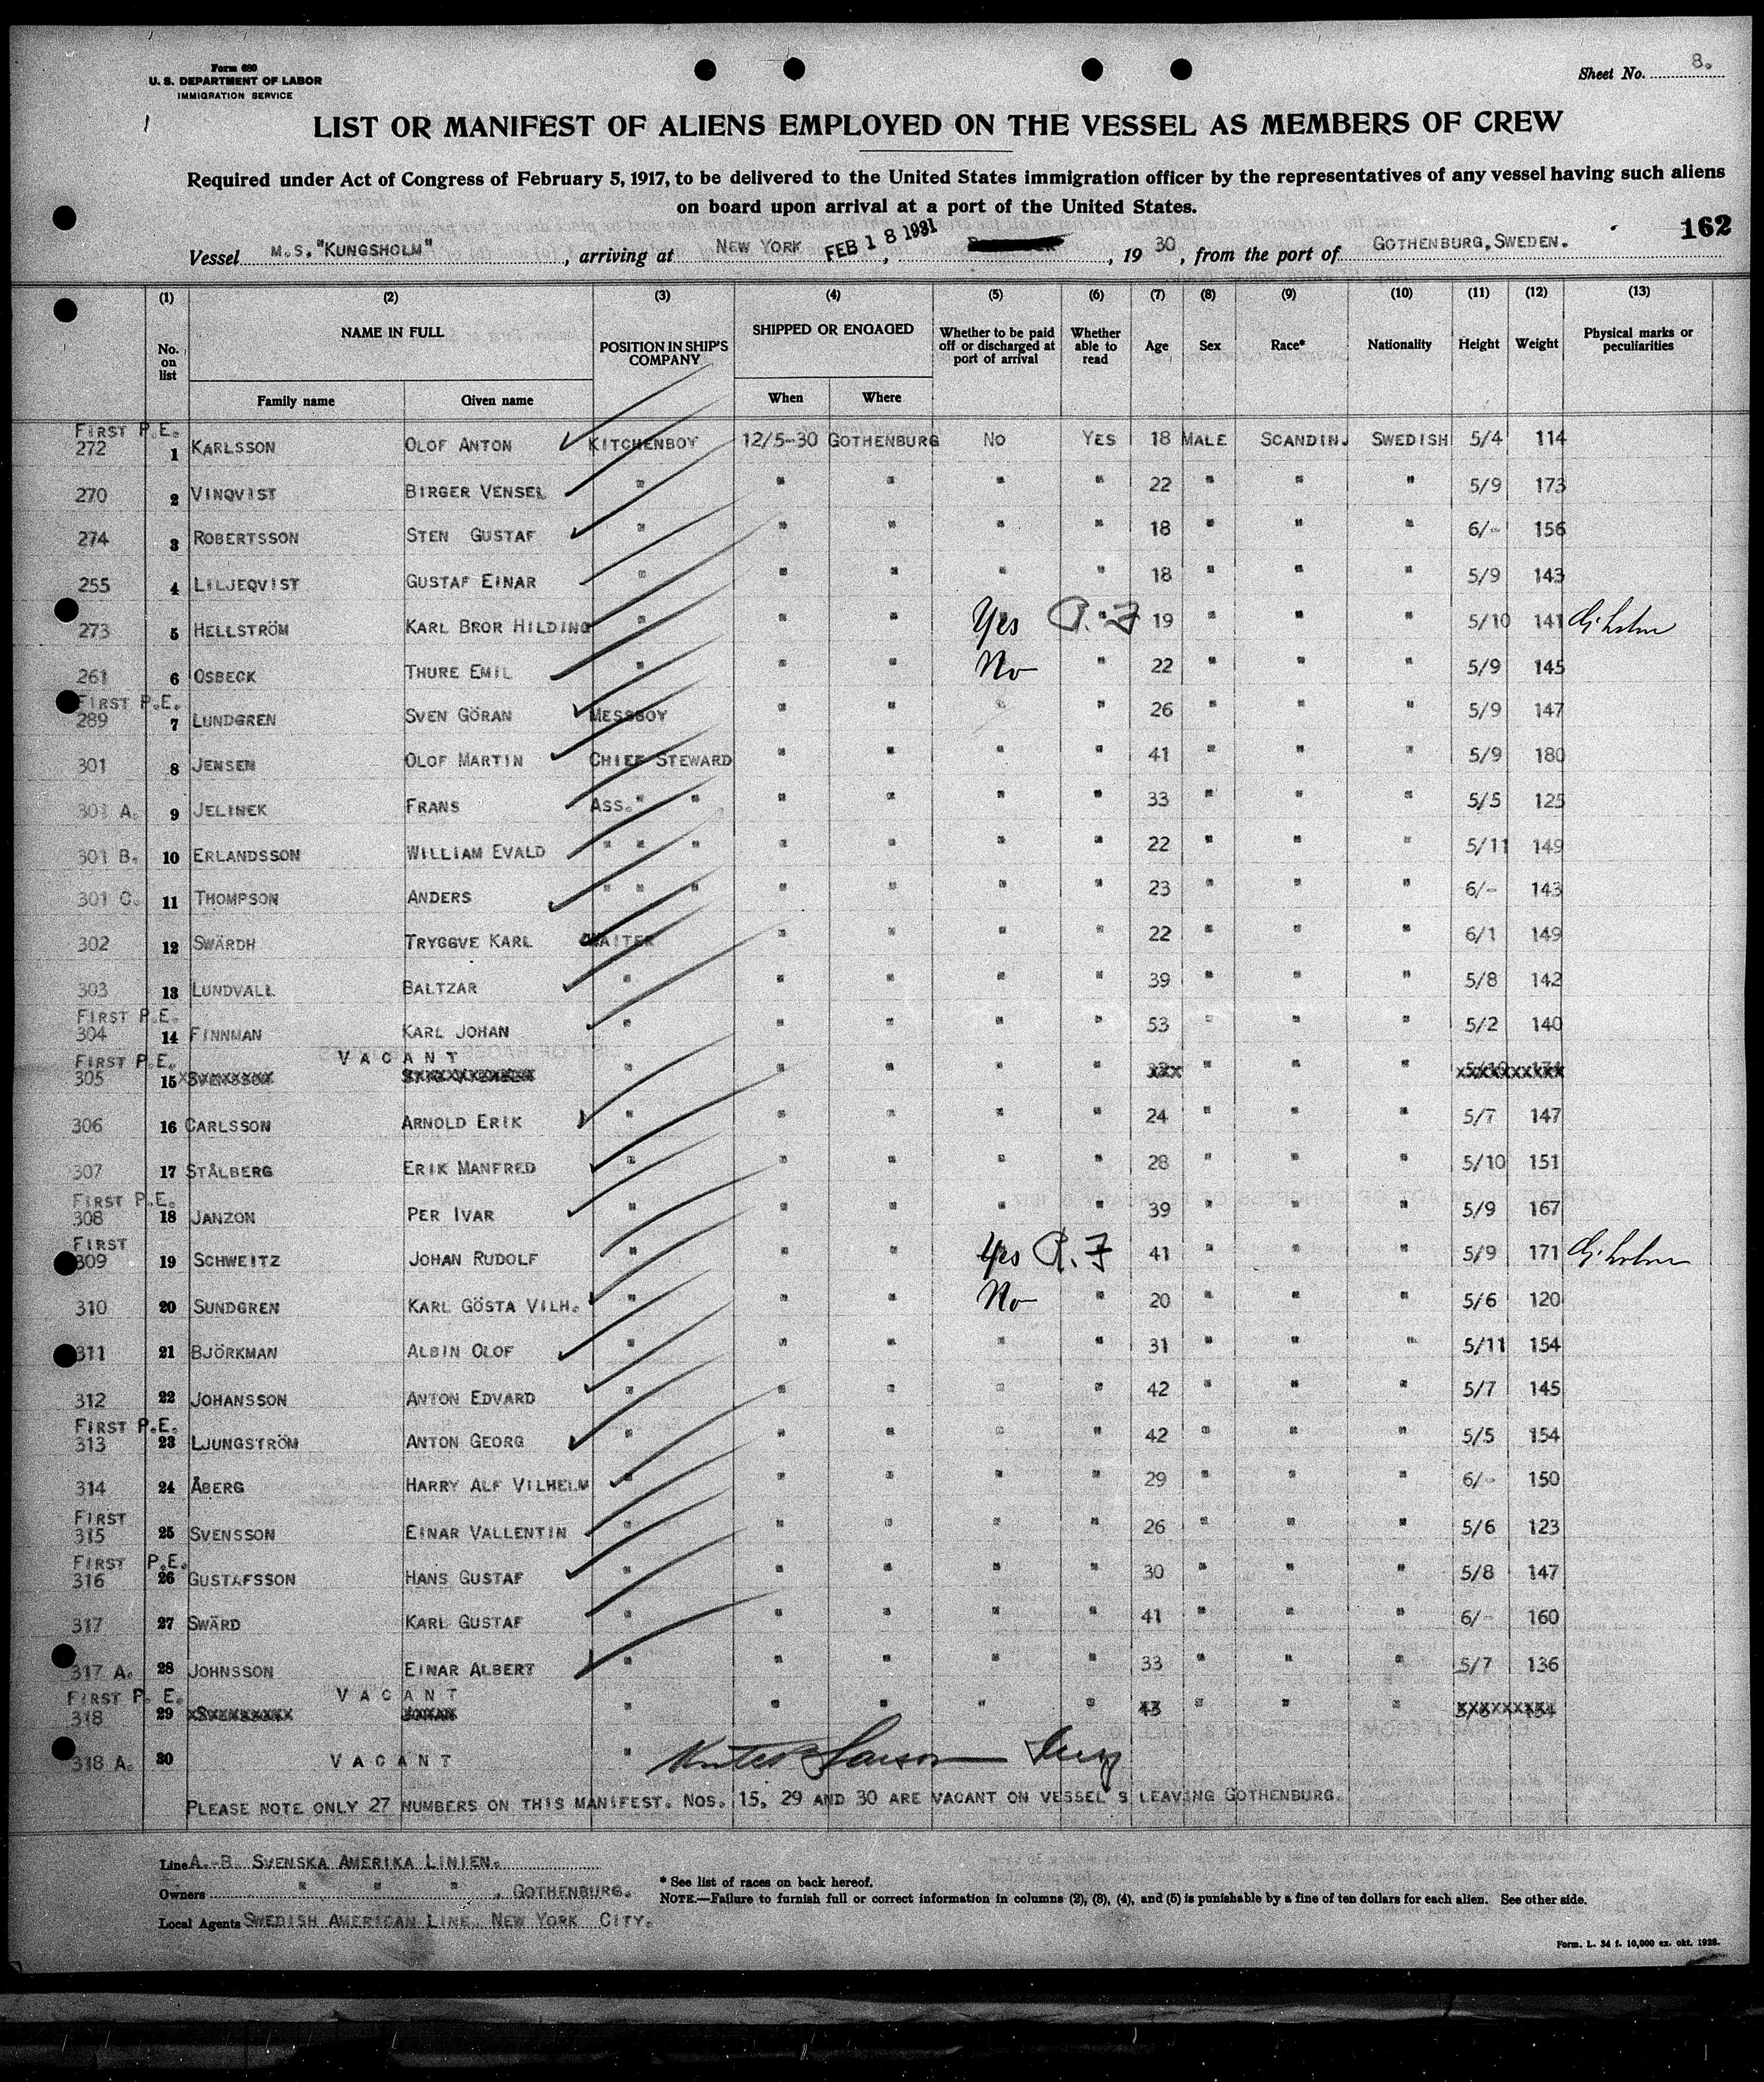 Form 680
U. S. DEPARTMENT OF LABOR
IMMIGRATION SERVICE
Sheet No. 8.
LIST OR MANIFEST OF ALIENS EMPLOYED ON THE VESSEL AS MEMBERS OF CREW
Required under Act of Congress of February 5, 1917, to be delivered to the United States immigration officer by the representatives of any vessel having such aliens
on board upon arrival at a port of the United States.
162
Vessel M.S. "KUNGSHOLM", arriving at NEW YORK FEB 18 1931, 1930, from the port of GOTHENBURG, SWEDEN.
(1) (2) (3) (4) (5) (6) (7) (8) (9) (10) (11) (12) (13)
No. on list NAME IN FULL POSITION IN SHIP'S COMPANY SHIPPED OR ENGAGED Whether to be paid off or discharged at port of arrival Whether able to read Age Sex Race* Nationality Height Weight Physical marks or peculiarities
Family name Given name When Where
FIRST P.E.
272 1 KARLSSON OLOF ANTON KITCHENBOY 12/5-30 GOTHENBURG NO YES 18 MALE SCANDIN. SWEDISH 5/4 114
270 2 VINQVIST BIRGER VENSEL " " " " " 22 " " " 5/9 173
274 3 ROBERTSSON STEN GUSTAF " " " " " 18 " " " 6/- 156
255 4 LILJEQVIST GUSTAF EINAR " " " " " 18 " " " 5/9 143
273 5 HELLSTRÖM KARL BROR HILDING " " " Yes " 19 " " " 5/10 141
261 6 OSBECK THURE EMIL " " " No " 22 " " " 5/9 145
FIRST P.E.
289 7 LUNDGREN SVEN GÖRAN MESSBOY " " " " 26 " " " 5/9 147
301 8 JENSEN OLOF MARTIN CHIEF STEWARD " " " " 41 " " " 5/9 180
301 A. 9 JELINEK FRANS ASS. " " " " " " 33 " " " 5/5 125
301 B. 10 ERLANDSSON WILLIAM EVALD " " " " " " " 22 " " " 5/11 149
301 C. 11 THOMPSON ANDERS " " " " " " " 23 " " " 6/- 143
302 12 SWÄRDH TRYGGVE KARL WAITER " " " " 22 " " " 6/1 149
303 13 LUNDVALL BALTZAR " " " " " 39 " " " 5/8 142
FIRST P.E.
304 14 FINNMAN KARL JOHAN " " " " " 53 " " " 5/2 140
FIRST P.E. VACANT
305 15 " " " " " " " "
306 16 CARLSSON ARNOLD ERIK " " " " " 24 " " " 5/7 147
307 17 STÅLBERG ERIK MANFRED " " " " " 28 " " " 5/10 151
FIRST P.E.
308 18 JANZON PER IVAR " " " " " 39 " " " 5/9 167
FIRST
309 19 SCHWEITZ JOHAN RUDOLF " " " Yes 41 " " " 5/9 171
310 20 SUNDGREN KARL GÖSTA VILH. " " " No " 20 " " " 5/6 120
311 21 BJÖRKMAN ALBIN OLOF " " " " " 31 " " " 5/11 154
312 22 JOHANSSON ANTON EDVARD " " " " " 42 " " " 5/7 145
FIRST P.E.
313 23 LJUNGSTRÖM ANTON GEORG " " " " " 42 " " " 5/5 154
314 24 ÅBERG HARRY ALF VILHELM " " " " " 29 " " " 6/- 150
FIRST
315 25 SVENSSON EINAR VALLENTIN " " " " " 26 " " " 5/6 123
FIRST P.E.
316 26 GUSTAFSSON HANS GUSTAF " " " " " 30 " " " 5/8 147
317 27 SWÄRD KARL GUSTAF " " " " " 41 " " " 6/- 160
317 A. 28 JOHNSSON EINAR ALBERT " " " " " 33 " " " 5/7 136
FIRST P. E. VACANT
318 29 " " " " " " " "
318 A. 30 VACANT "
PLEASE NOTE ONLY 27 NUMBERS ON THIS MANIFEST. NOS. 15, 29 AND 30 ARE VACANT ON VESSEL'S LEAVING GOTHENBURG.
Line A.-B. SVENSKA AMERIKA LINIEN.
Owners " " " , GOTHENBURG.
Local Agents SWEDISH AMERICAN LINE, NEW YORK CITY.
* See list of races on back hereof.
NOTE.—Failure to furnish full or correct information in columns (2), (3), (4), and (5) is punishable by a fine of ten dollars for each alien. See other side.
Form. L. 34 f. 10,000 ex. okt. 1928.